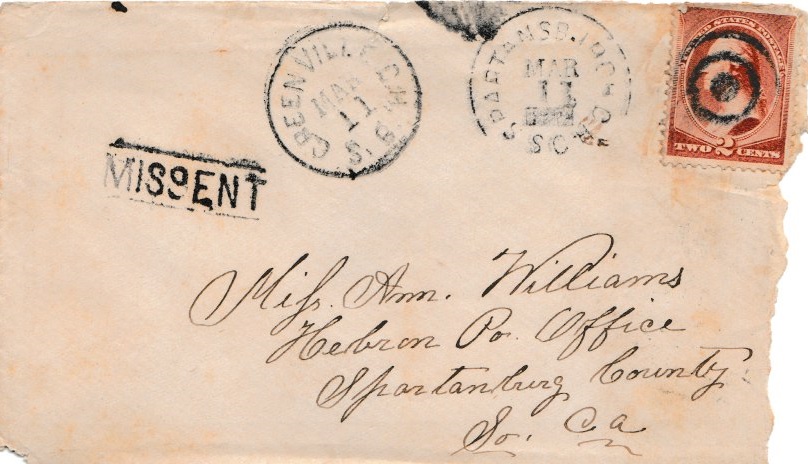 GREENVILLE C.H.
MAR
11
S. C.
SPARTANSBURGH C.H.
MAR
11
SC
UNITED STATES POSTAGE
TWO 2 CENTS
MISSENT
Miss. Ann. Williams
Hebron Po. Office
Spartanburg County
So. Ca